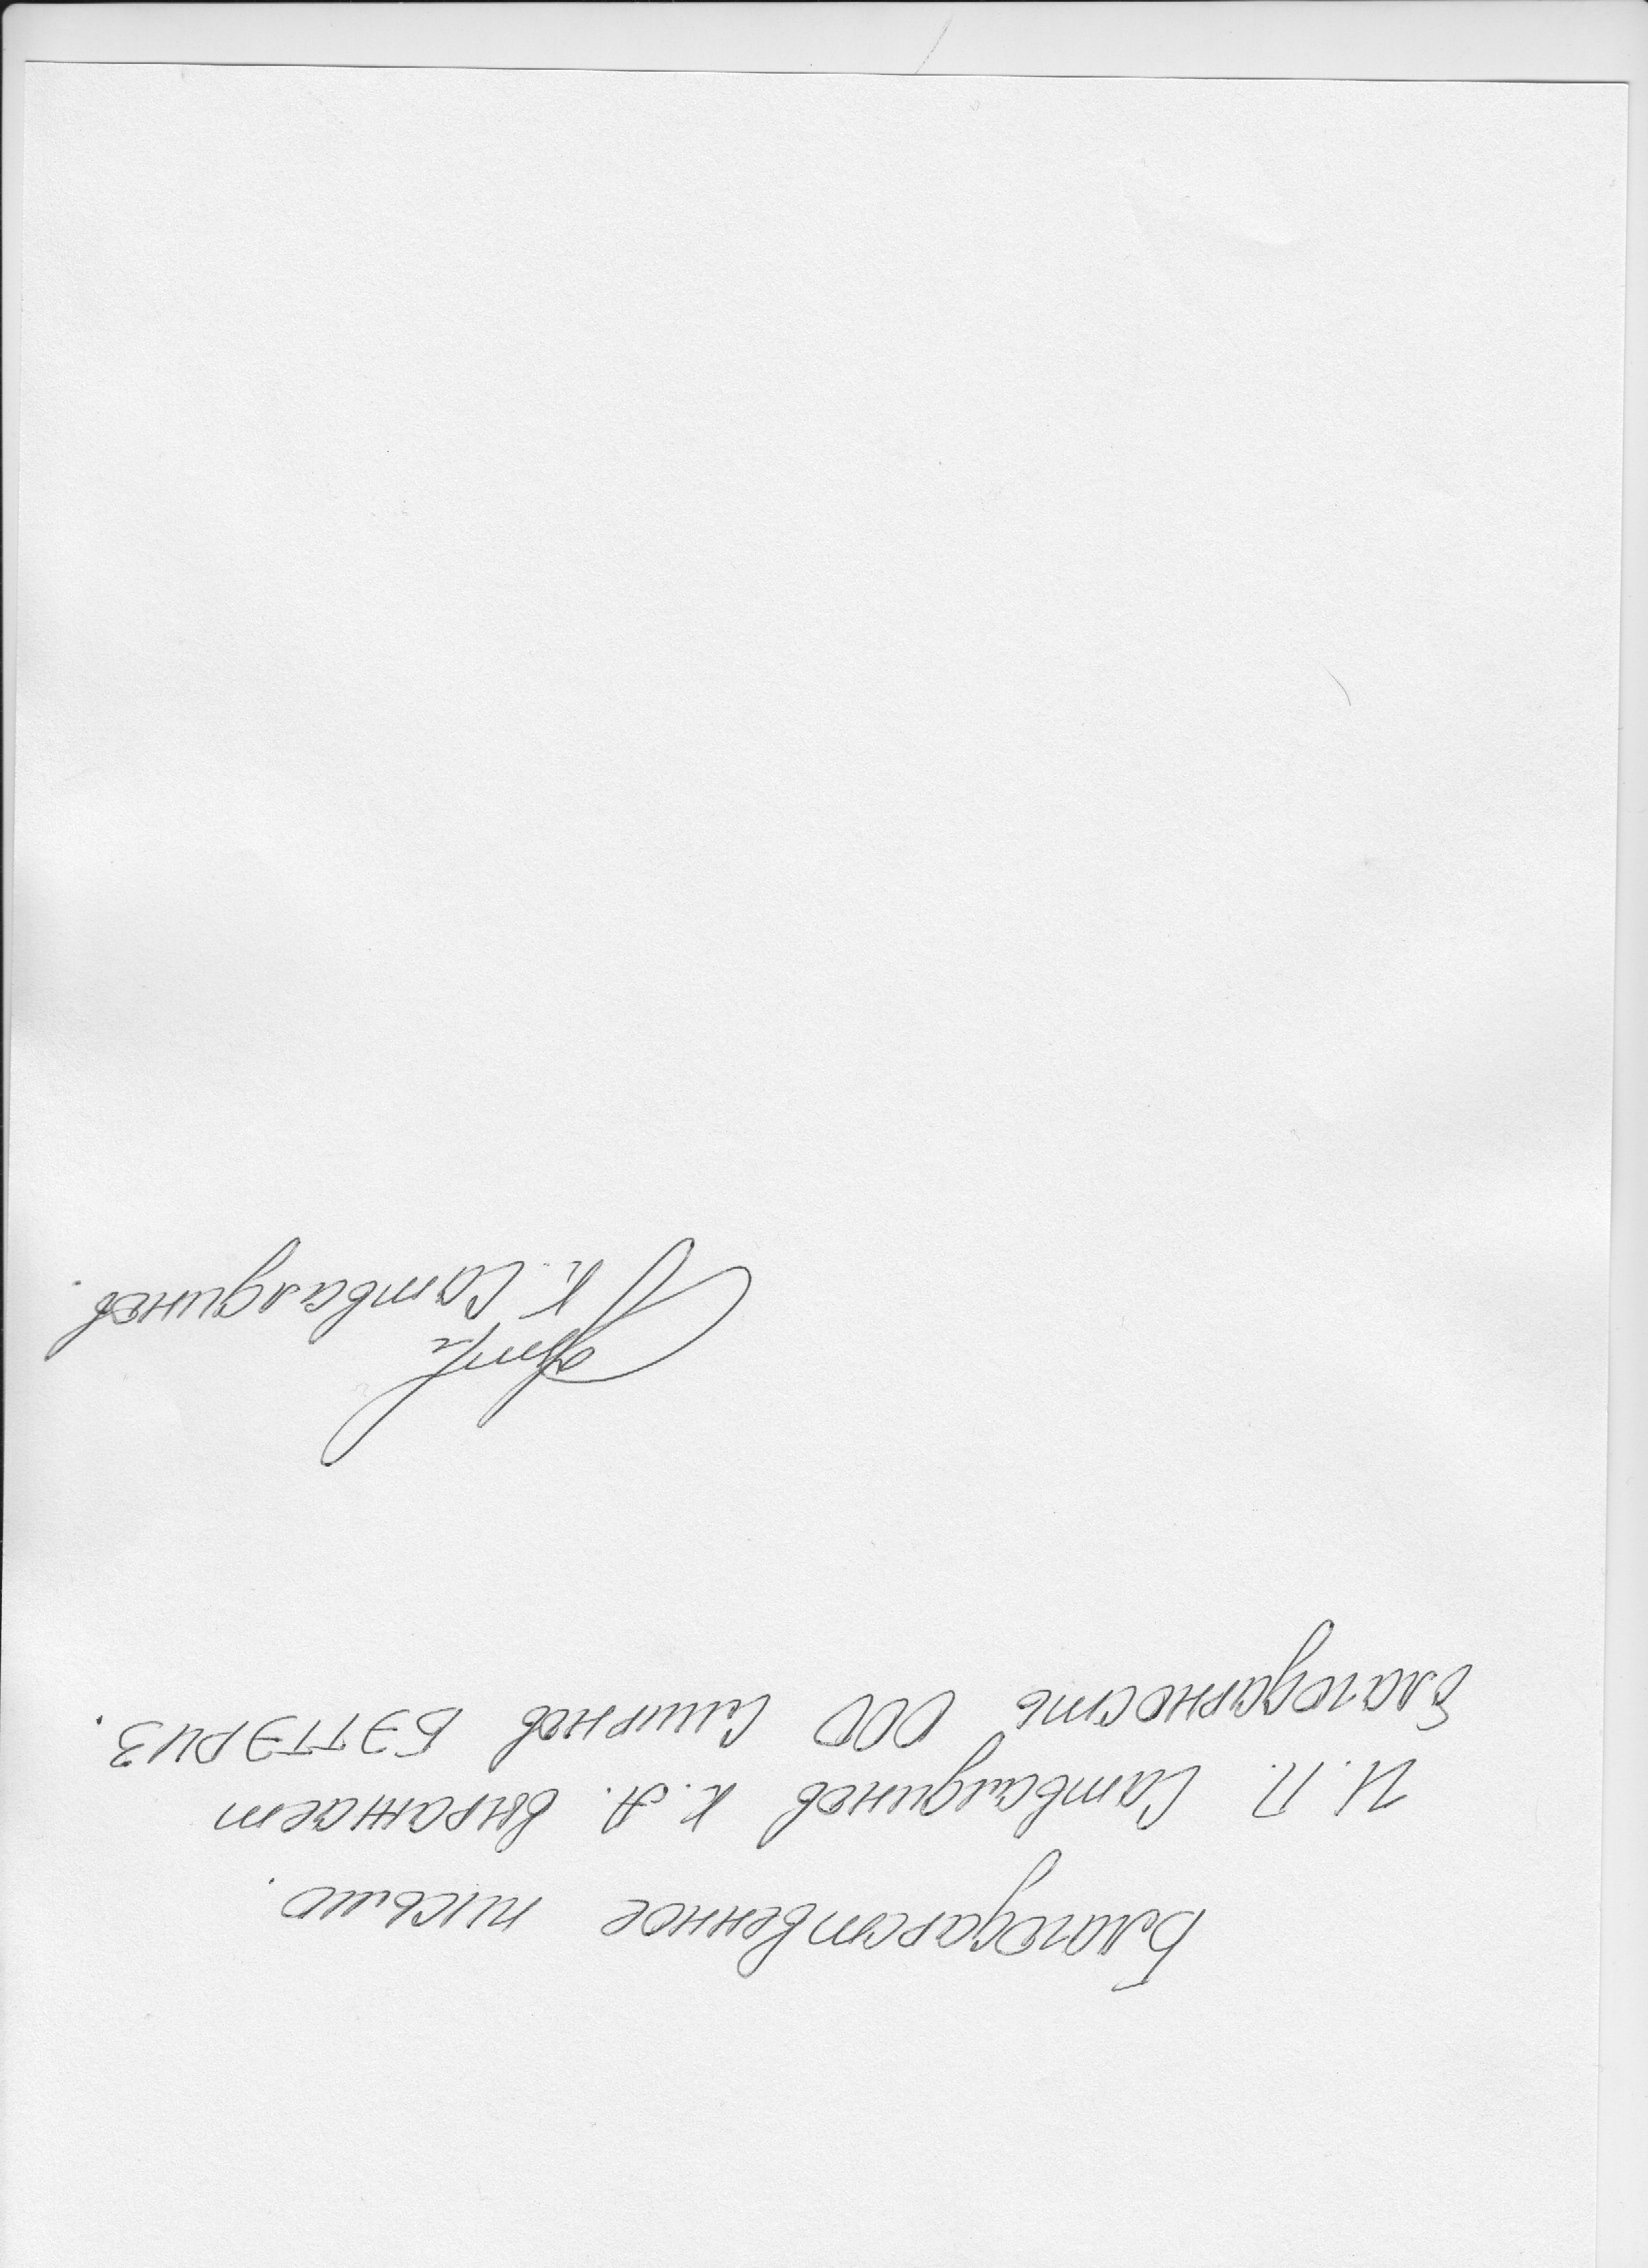 Благодарственное письмо.
И.П. Сатвалдинов К.А. выражает
благодарность ООО Смирнов БЭТТЭРИЗ.
К. Сатвалдинов.